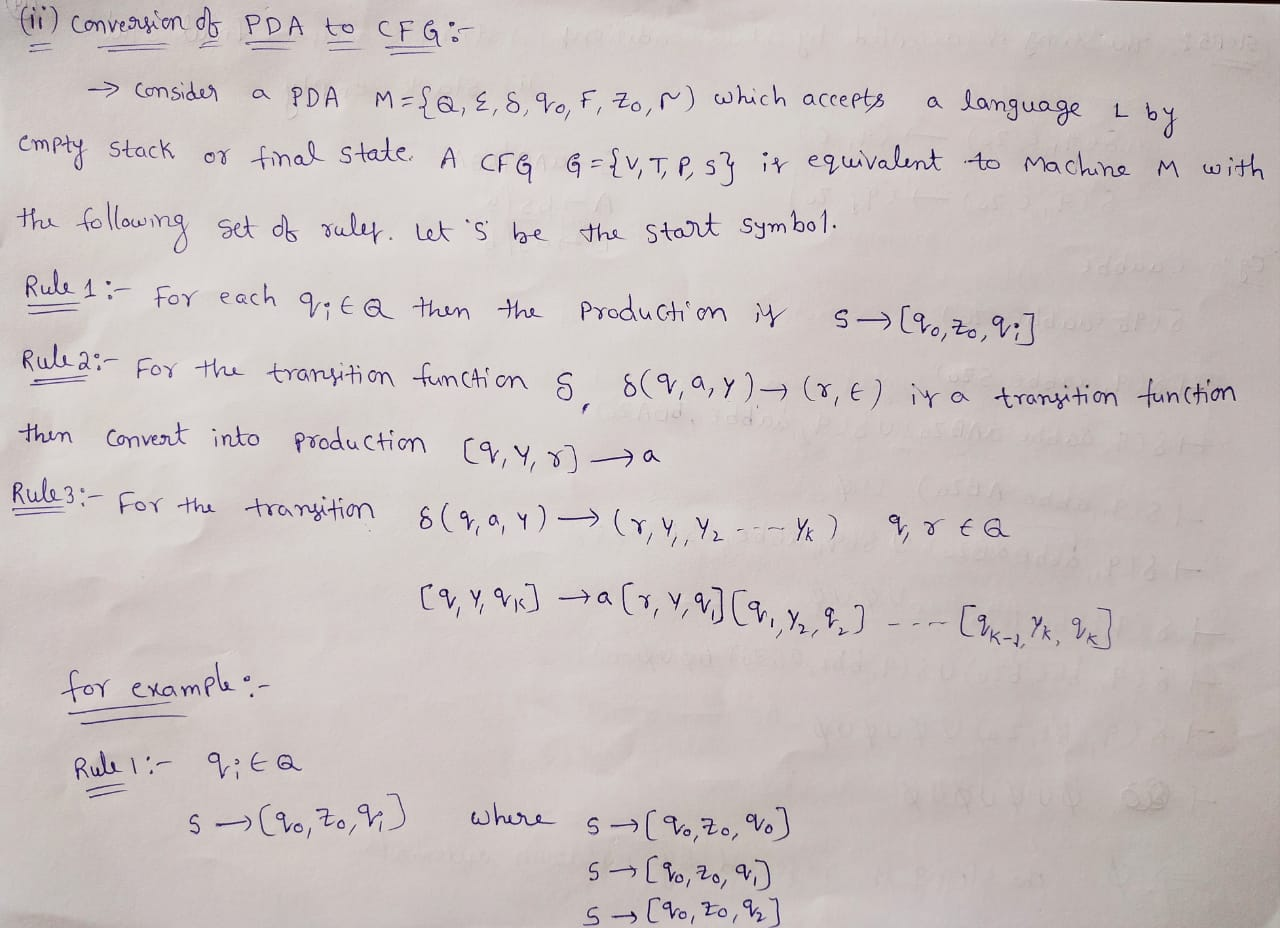 (ii) Conversion of PDA to CFG :-
→ Consider a PDA M={Q, Σ, δ, q₀, F, z₀, Γ) which accepts a language L by
empty stack or final state. A CFG G={V, T, P, S} is equivalent to Machine M with
the following set of rules. Let 'S' be the start symbol.
Rule 1 :- For each qᵢ ∈ Q then the Production is S → [q₀, z₀, qᵢ]
Rule 2:- For the transition function δ, δ(q, a, y) → (r, ε) is a transition function
then Convert into production [q, y, r] → a
Rule 3:- For the transition δ(q, a, y) → (r, y₁, y₂ ---- yₖ) q, r ∈ Q
[q, y, qₖ] → a [r, y₁, q₁] [q₁, y₂, q₂] ---- [qₖ₋₁, yₖ, qₖ]
for example :-
Rule 1 :- qᵢ ∈ Q
S → [q₀, z₀, qᵢ] where S → [q₀, z₀, q₀]
S → [q₀, z₀, q₁]
S → [q₀, z₀, q₂]